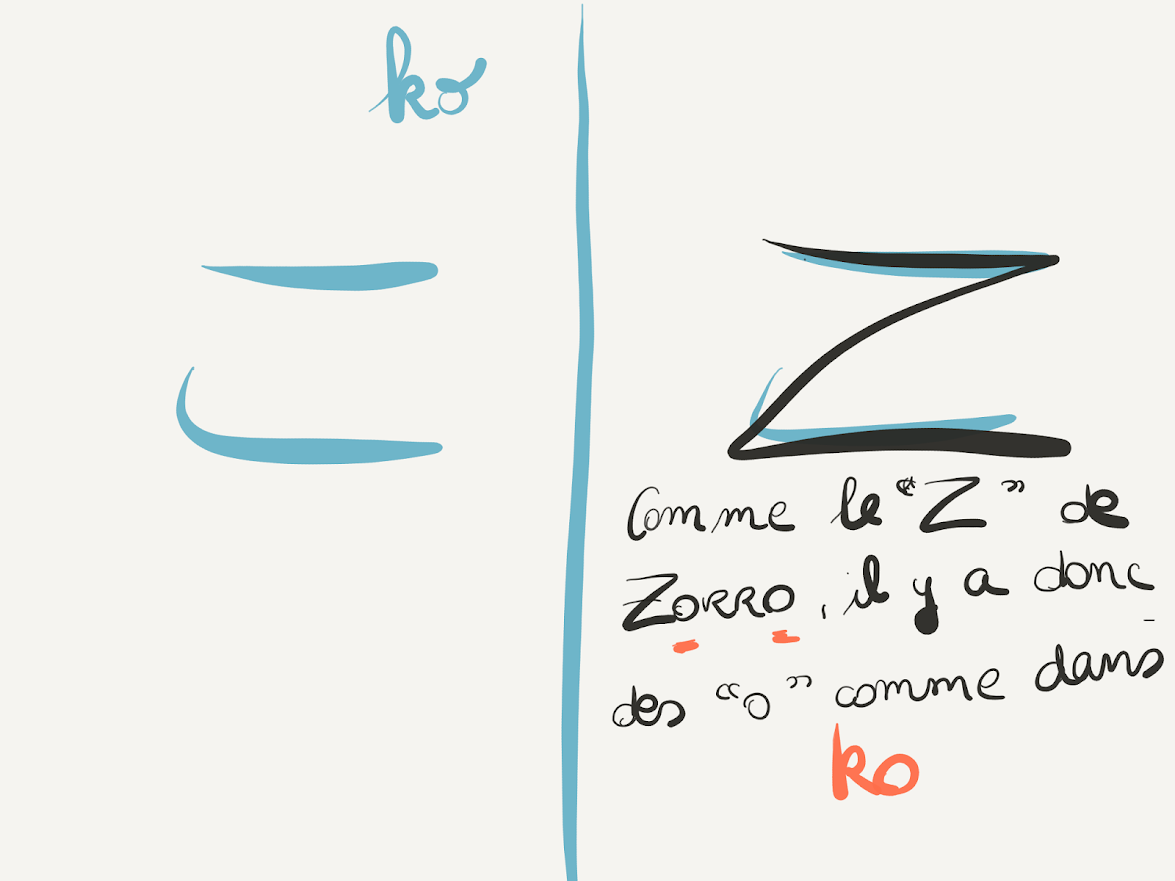 ko
こ
Z
Comme le "Z" de
ZORRO, il y a donc
des "o" comme dans
ko